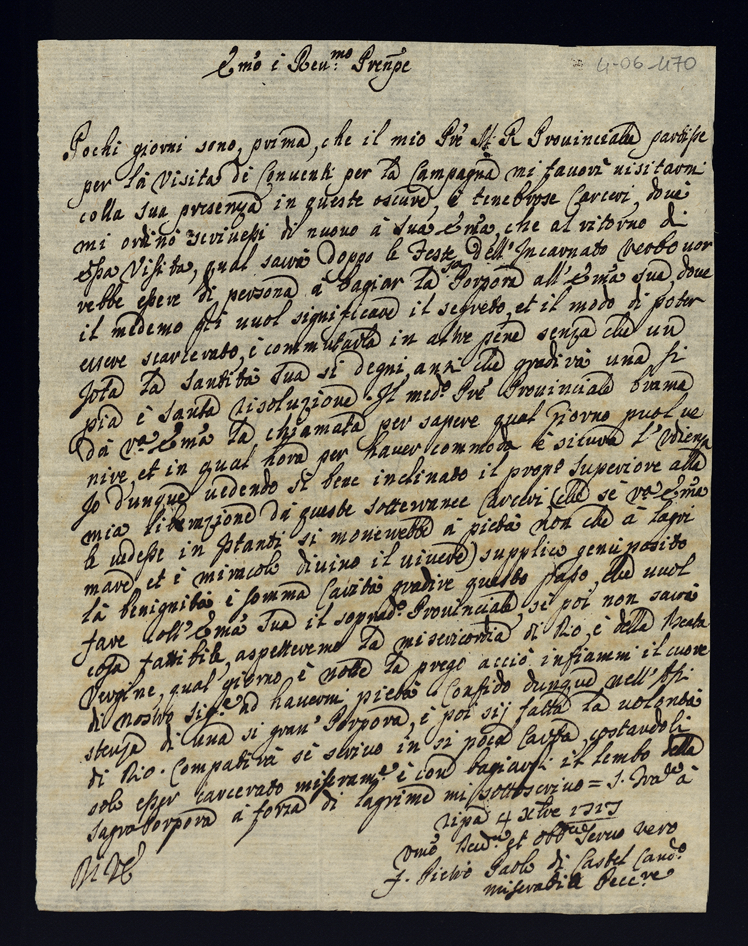 4-06-1170
Emo è Reu:mo Prenpe
Pochi giorni sono, prima, che il mio Prè M: R Prouinciale partisse
per la Visita di Conuenti per la Campagna mi fauorì uisitarmi
colla sua presenza in queste oscure, è tenebrose Carceri, doue
mi ordinò scriuessi di nuouo à sua Ema, che al ritorno di
essa Visita, qual sarà doppo le Feste dell'Incarnato Verbo uor
rebbe essere di persona à bagiar la Sa Porpora all'Ema sua, doue
il medemo gli uuol significare il segreto, et il modo di poter
essere scarcerato, è commutarla in altre pene senza che un
Jota la santità sua si degni, anzi che gradirà una si
pia è santa risoluzione. Il med:o Pre Prouinciale brama
da Va Ema la chiamata per sapere qual giorno puol ue
nire, et in qual hora per hauer commoda è sicura l'Udienza
Io dunque uedendo si bene inclinato il propo superiore alla
mia liberazione da queste sotterranee Carceri (che se Va Ema
le uedesse in Istanti si mouerebbe à pietà non che à lagri
mare et è miracolo diuino il uiuere) supplico genuposito
la benignità è somma Carità gradire questo passo, che uuol
fare coll'Ema sua il soprado Prouinciale, se poi non sarà
cosa fattibile, aspetteremo la misericordia di Dio, è della Beata
Vergine, qual giorno, è notte la prego acciò infiammi il cuore
di nostro Sigre ad hauermi pietà. Confido dunque nell'Assi
stenza di una si gran' Porpora, è poi sij fatta la uolontà
di Dio. Compatirà se scriuo in si poca Carta, costandoli
solo esser carcerato miserame è con bagiarli il lembo della
sagra Porpora à forza di lagrime mi sottoscriuo = S. Frado à
ripa 4 Xbre 1717
Umo Deuo et obbmo seruo uero
f. Pietro Paolo di Castel Cando
miserabile Peccre